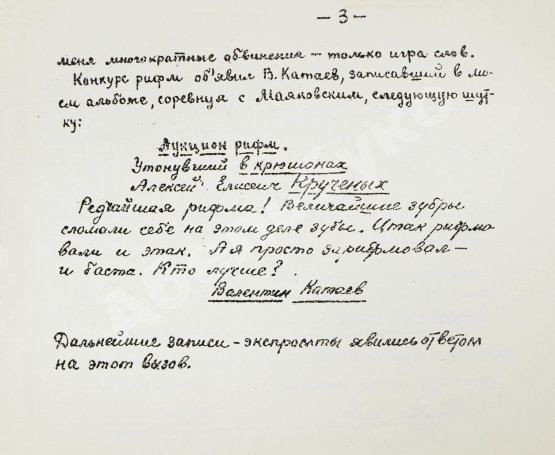 — 3 —
меня многократные обвинения — только игра слов.
Конкурс рифм об'явил В. Катаев, записавший в мо-
ем альбоме, соревнуя с Маяковским, следующую шут-
ку:
Аукцион рифм.
Утонувший в крюшонах
Алексей Елисеич Крученых
Редчайшая рифма! Величайшие зубры
сломали себе на этом деле зубы. И так рифмо
вали и этак. А я просто зарифмовал —
и баста. Кто лучше?
Валентин Катаев
Дальнейшие записи — экспромты явились ответом
на этот вызов.